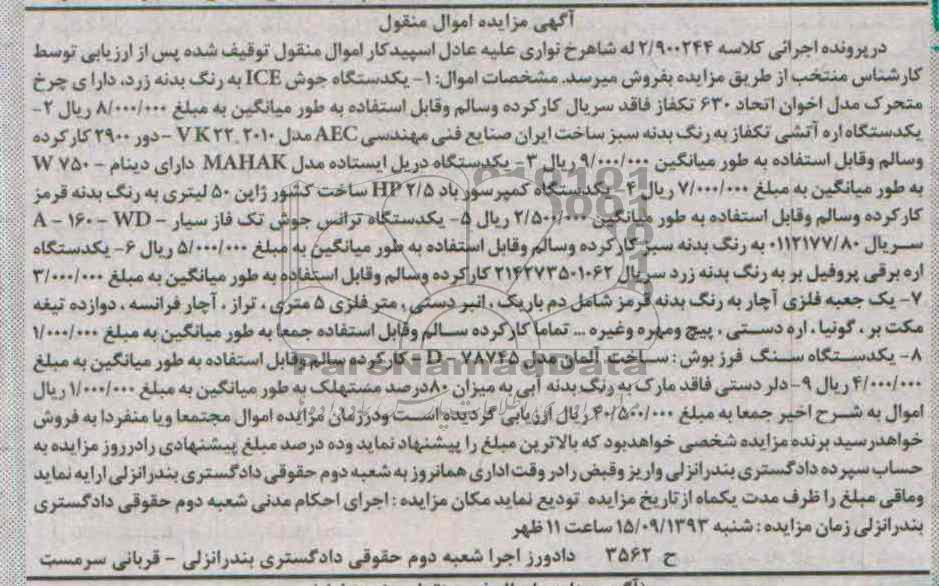 آگهی مزایده اموال منقول
درپرونده اجرائی کلاسه ۲/۹۰۰۲۴۴ له شاهرخ نواری علیه عادل اسپیدکار اموال منقول توقیف شده پس از ارزیابی توسط
کارشناس منتخب از طریق مزایده بفروش میرسد. مشخصات اموال: ۱- یکدستگاه جوش ICE به رنگ بدنه زرد، دارا ی چرخ
متحرک مدل اخوان اتحاد ۶۳۰ تکفاز فاقد سریال کارکرده وسالم وقابل استفاده به طور میانگین به مبلغ ۸/۰۰۰/۰۰۰ ریال ۲-
یکدستگاه اره آتشی تکفاز به رنگ بدنه سبز ساخت ایران صنایع فنی مهندسی AEC مدل ۲۰۱۰-۲۲ V K - دور ۲۹۰۰ کارکرده
وسالم وقابل استفاده به طور میانگین ۹/۰۰۰/۰۰۰ ریال ۳- یکدستگاه دریل ایستاده مدل MAHAK دارای دینام - ۷۵۰ W
به طور میانگین به مبلغ ۷/۰۰۰/۰۰۰ ریال ۴- یکدستگاه کمپرسور باد ۲/۵ HP ساخت کشور ژاپن ۵۰ لیتری به رنگ بدنه قرمز
کارکرده وسالم وقابل استفاده به طور میانگین ۲/۵۰۰/۰۰۰ ریال ۵- یکدستگاه ترانس جوش تک فاز سیار - A - ۱۶۰ - WD
سریال ۰۱۱۲۱۷۷/۸۰ به رنگ بدنه سبز کارکرده وسالم وقابل استفاده به طور میانگین به مبلغ ۵/۰۰۰/۰۰۰ ریال ۶- یکدستگاه
اره برقی پروفیل بر به رنگ بدنه زرد سریال ۲۱۴۲۷۳۵۰۱۰۶۲ کارکرده وسالم وقابل استفاده به طور میانگین به مبلغ ۳/۰۰۰/۰۰۰
۷- یک جعبه فلزی آچار به رنگ بدنه قرمز شامل دم باریک ، انبر دستی ، متر فلزی ۵ متری ، تراز ، آچار فرانسه ، دوازده تیغه
مکت بر ، گونیا ، اره دستی ، پیچ ومهره وغیره ... تماما کارکرده سالم وقابل استفاده جمعا به طور میانگین به مبلغ ۱/۰۰۰/۰۰۰
۸- یکدستگاه سنگ فرز بوش : ساخت آلمان مدل ۷۸۷۴۵ - D - کارکرده سالم وقابل استفاده به طور میانگین به مبلغ
۴/۰۰۰/۰۰۰ ریال ۹- دلر دستی فاقد مارک به رنگ بدنه آبی به میزان ۸۰درصد مستهلک به طور میانگین به مبلغ ۱/۰۰۰/۰۰۰ ریال
اموال به شرح اخیر جمعا به مبلغ ۴۰/۵۰۰/۰۰۰ ریال ارزیابی گردیده است ودرزمان مزایده اموال مجتمعا ویا منفردا به فروش
خواهدرسید برنده مزایده شخصی خواهدبود که بالاترین مبلغ را پیشنهاد نماید وده درصد مبلغ پیشنهادی رادرروز مزایده به
حساب سپرده دادگستری بندرانزلی واریز وقبض رادر وقت اداری همانروز به شعبه دوم حقوقی دادگستری بندرانزلی ارایه نماید
ومافی مبلغ را ظرف مدت یکماه از تاریخ مزایده تودیع نماید مکان مزایده : اجرای احکام مدنی شعبه دوم حقوقی دادگستری
بندرانزلی زمان مزایده : شنبه ۱۵/۰۹/۱۳۹۳ ساعت ۱۱ ظهر
ح ۳۵۶۲ دادورز اجرا شعبه دوم حقوقی دادگستری بندرانزلی - قربانی سرمست
ParsNamadData